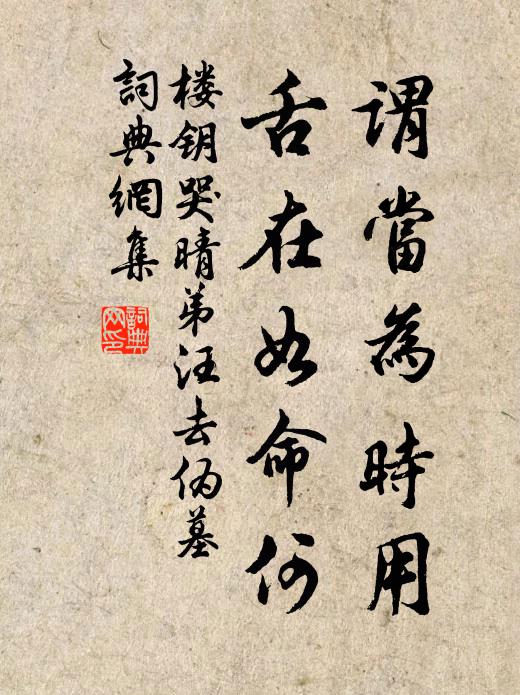 謂當為時用
舌在如命何
楼钥哭晴弟汪去伪墓
詞典網集
詞典
网印